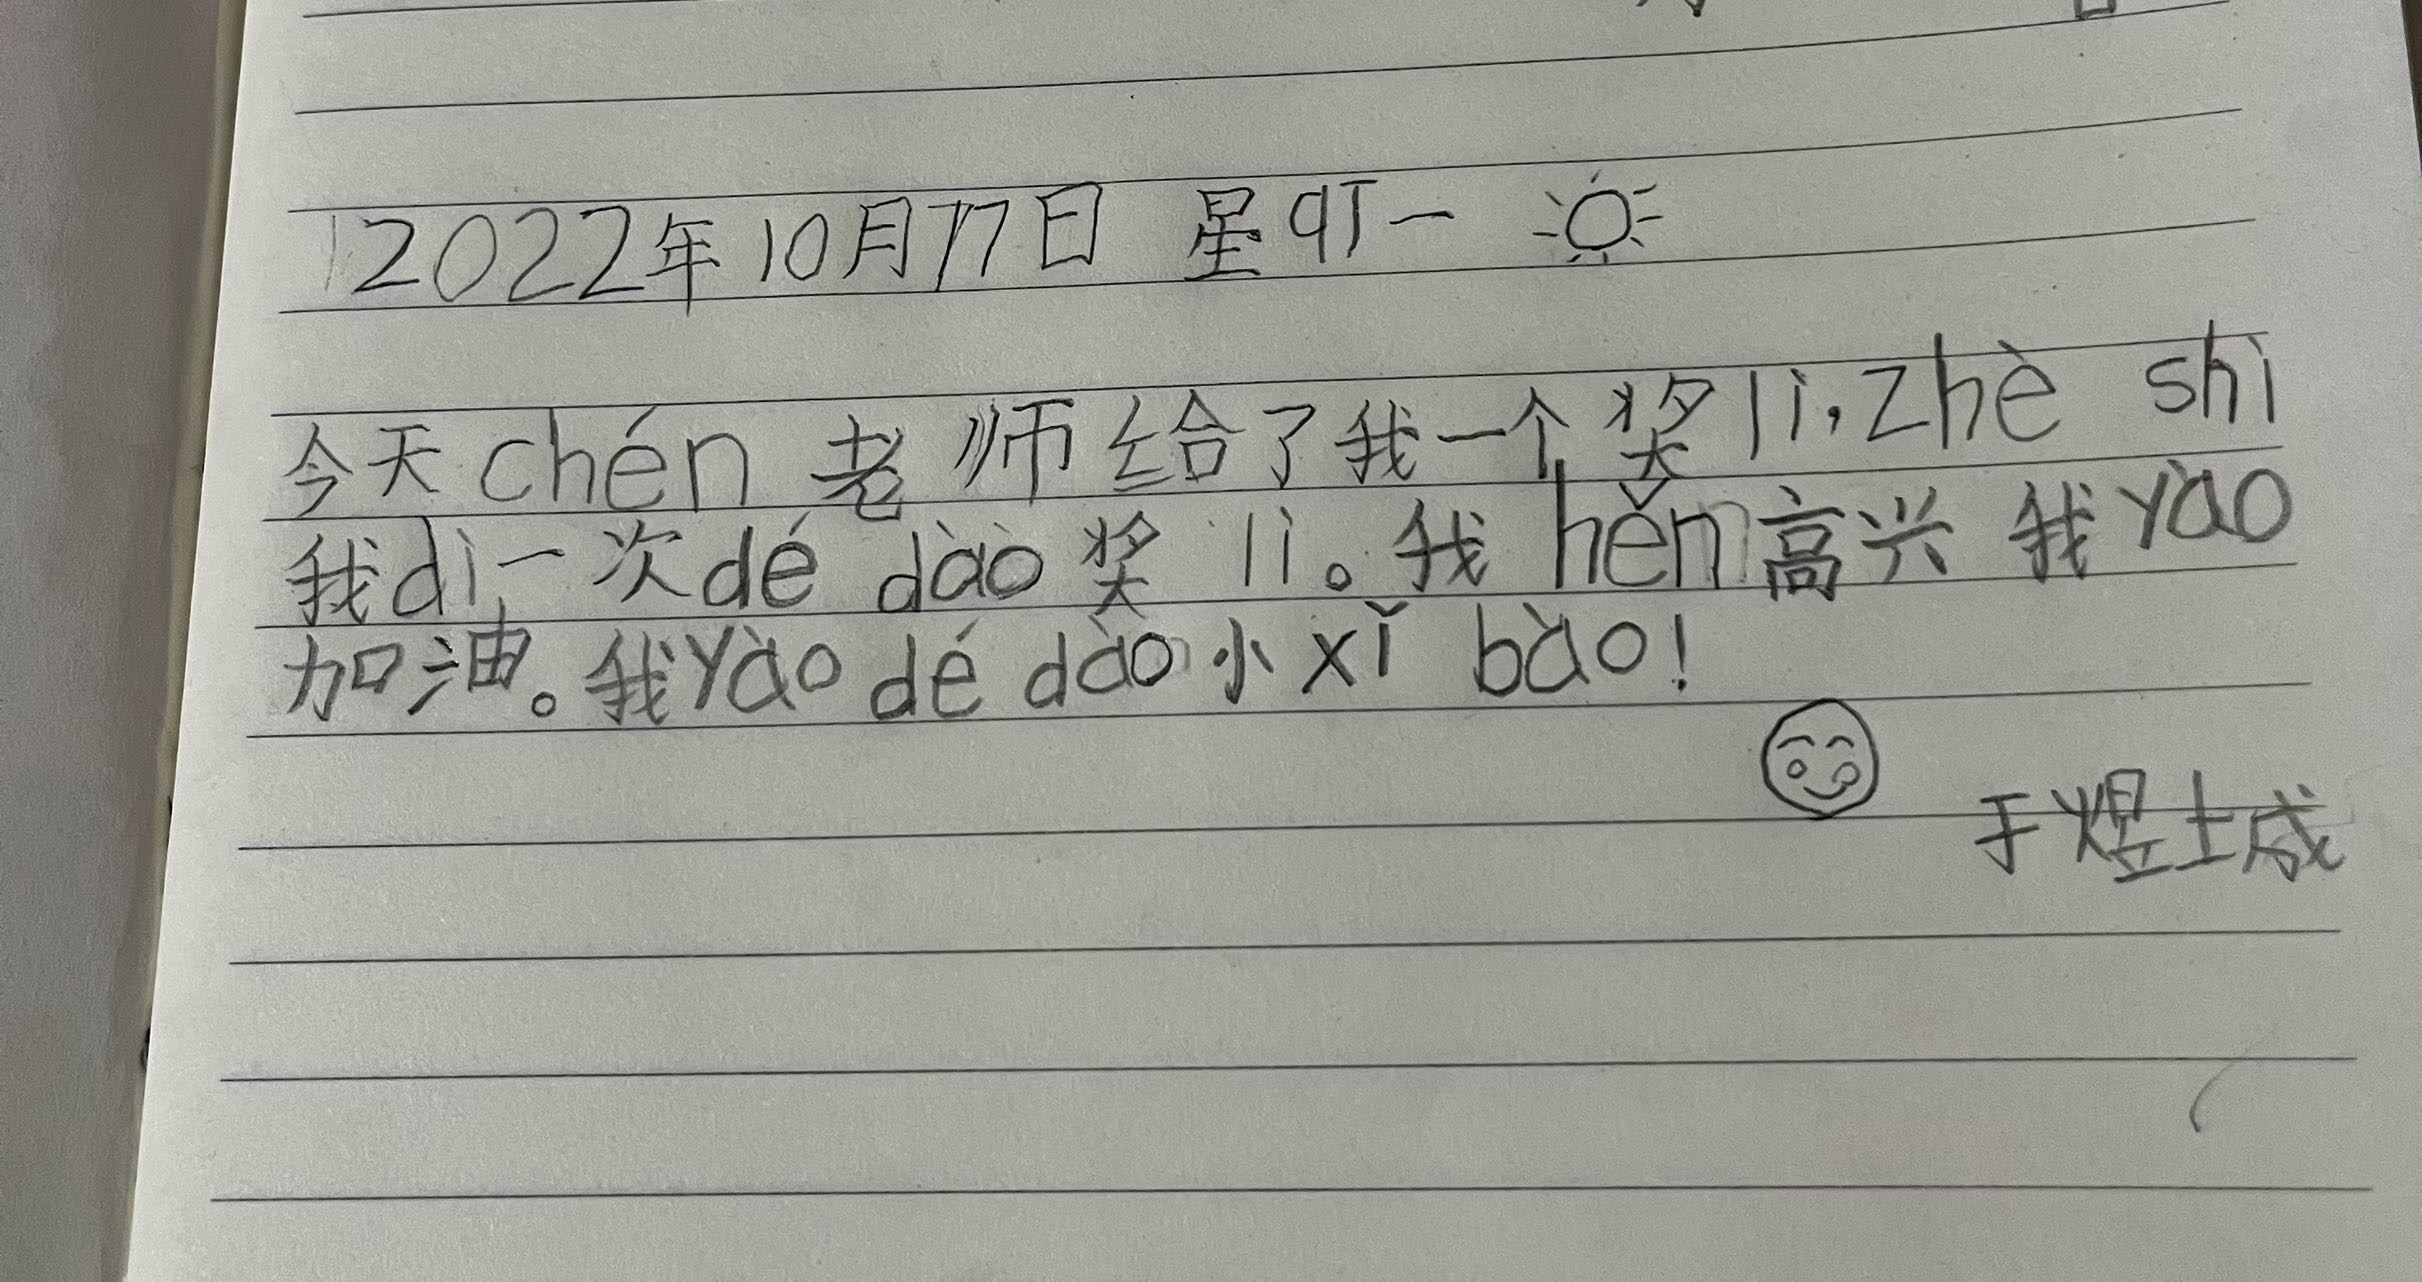 2022年10月17日 星qī一
今天chén老师给了我一个奖lì,zhè shì
我dì一次dé dào奖lì。我hěn高兴 我yào
加油。我yào dé dào小xǐ bào!
于煜城